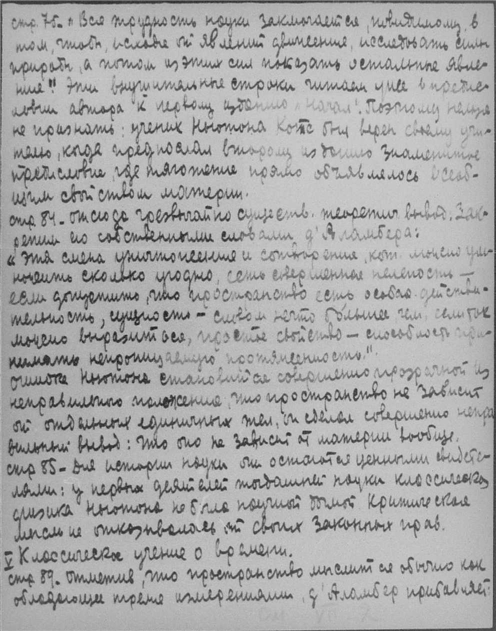 стр. 75. "Вся трудность науки заключается, повидимому, в
том, чтоб, исходя от явлений движения, исследовать силы
природы, а потом из этих сил показать остальные явле-
ния" Эти внушительные строки читаем уже в преди-
словии автора к первому изданию "Начал". Поэтому нельзя
не признать: ученик Ньютона Котс был верен своему учи-
телю, когда предпослал второму изданию знаменитое
предисловие где тяготение прямо объявлялось всеоб-
щим свойством материи.
стр 84 - отсюда чрезвычайно существ. теоретич. вывод. Зак-
репим его собственными словами д'Аламбера:
"Эта смена уничтожения и сотворения, кот. можно ум-
ножить сколько угодно, есть совершенная нелепость -
если допустить, что пространство есть особая действи-
тельность, сущность - словом нечто большее чем, если так
можно выразиться, простое свойство - способность при-
нимать непроницаемую протяженность".
Ошибка Ньютона становится совершенно прозрачной из
неправильного положения, что пространство не зависит
от отдельных единичных тел, он сделал совершенно непра
вильный вывод: что оно не зависит от материи вообще.
стр 85 - для истории науки они остаются ценными свидете-
лями: у первых деятелей тогдашней науки классическая
физика Ньютона не была научной догмой. Критическая
мысль не отказывалась от своих законных прав.
V Классическое учение о времени.
стр. 89. отметив, что пространство мыслится обычно как
обладающее тремя измерениями, д'Аламбер прибавляет: